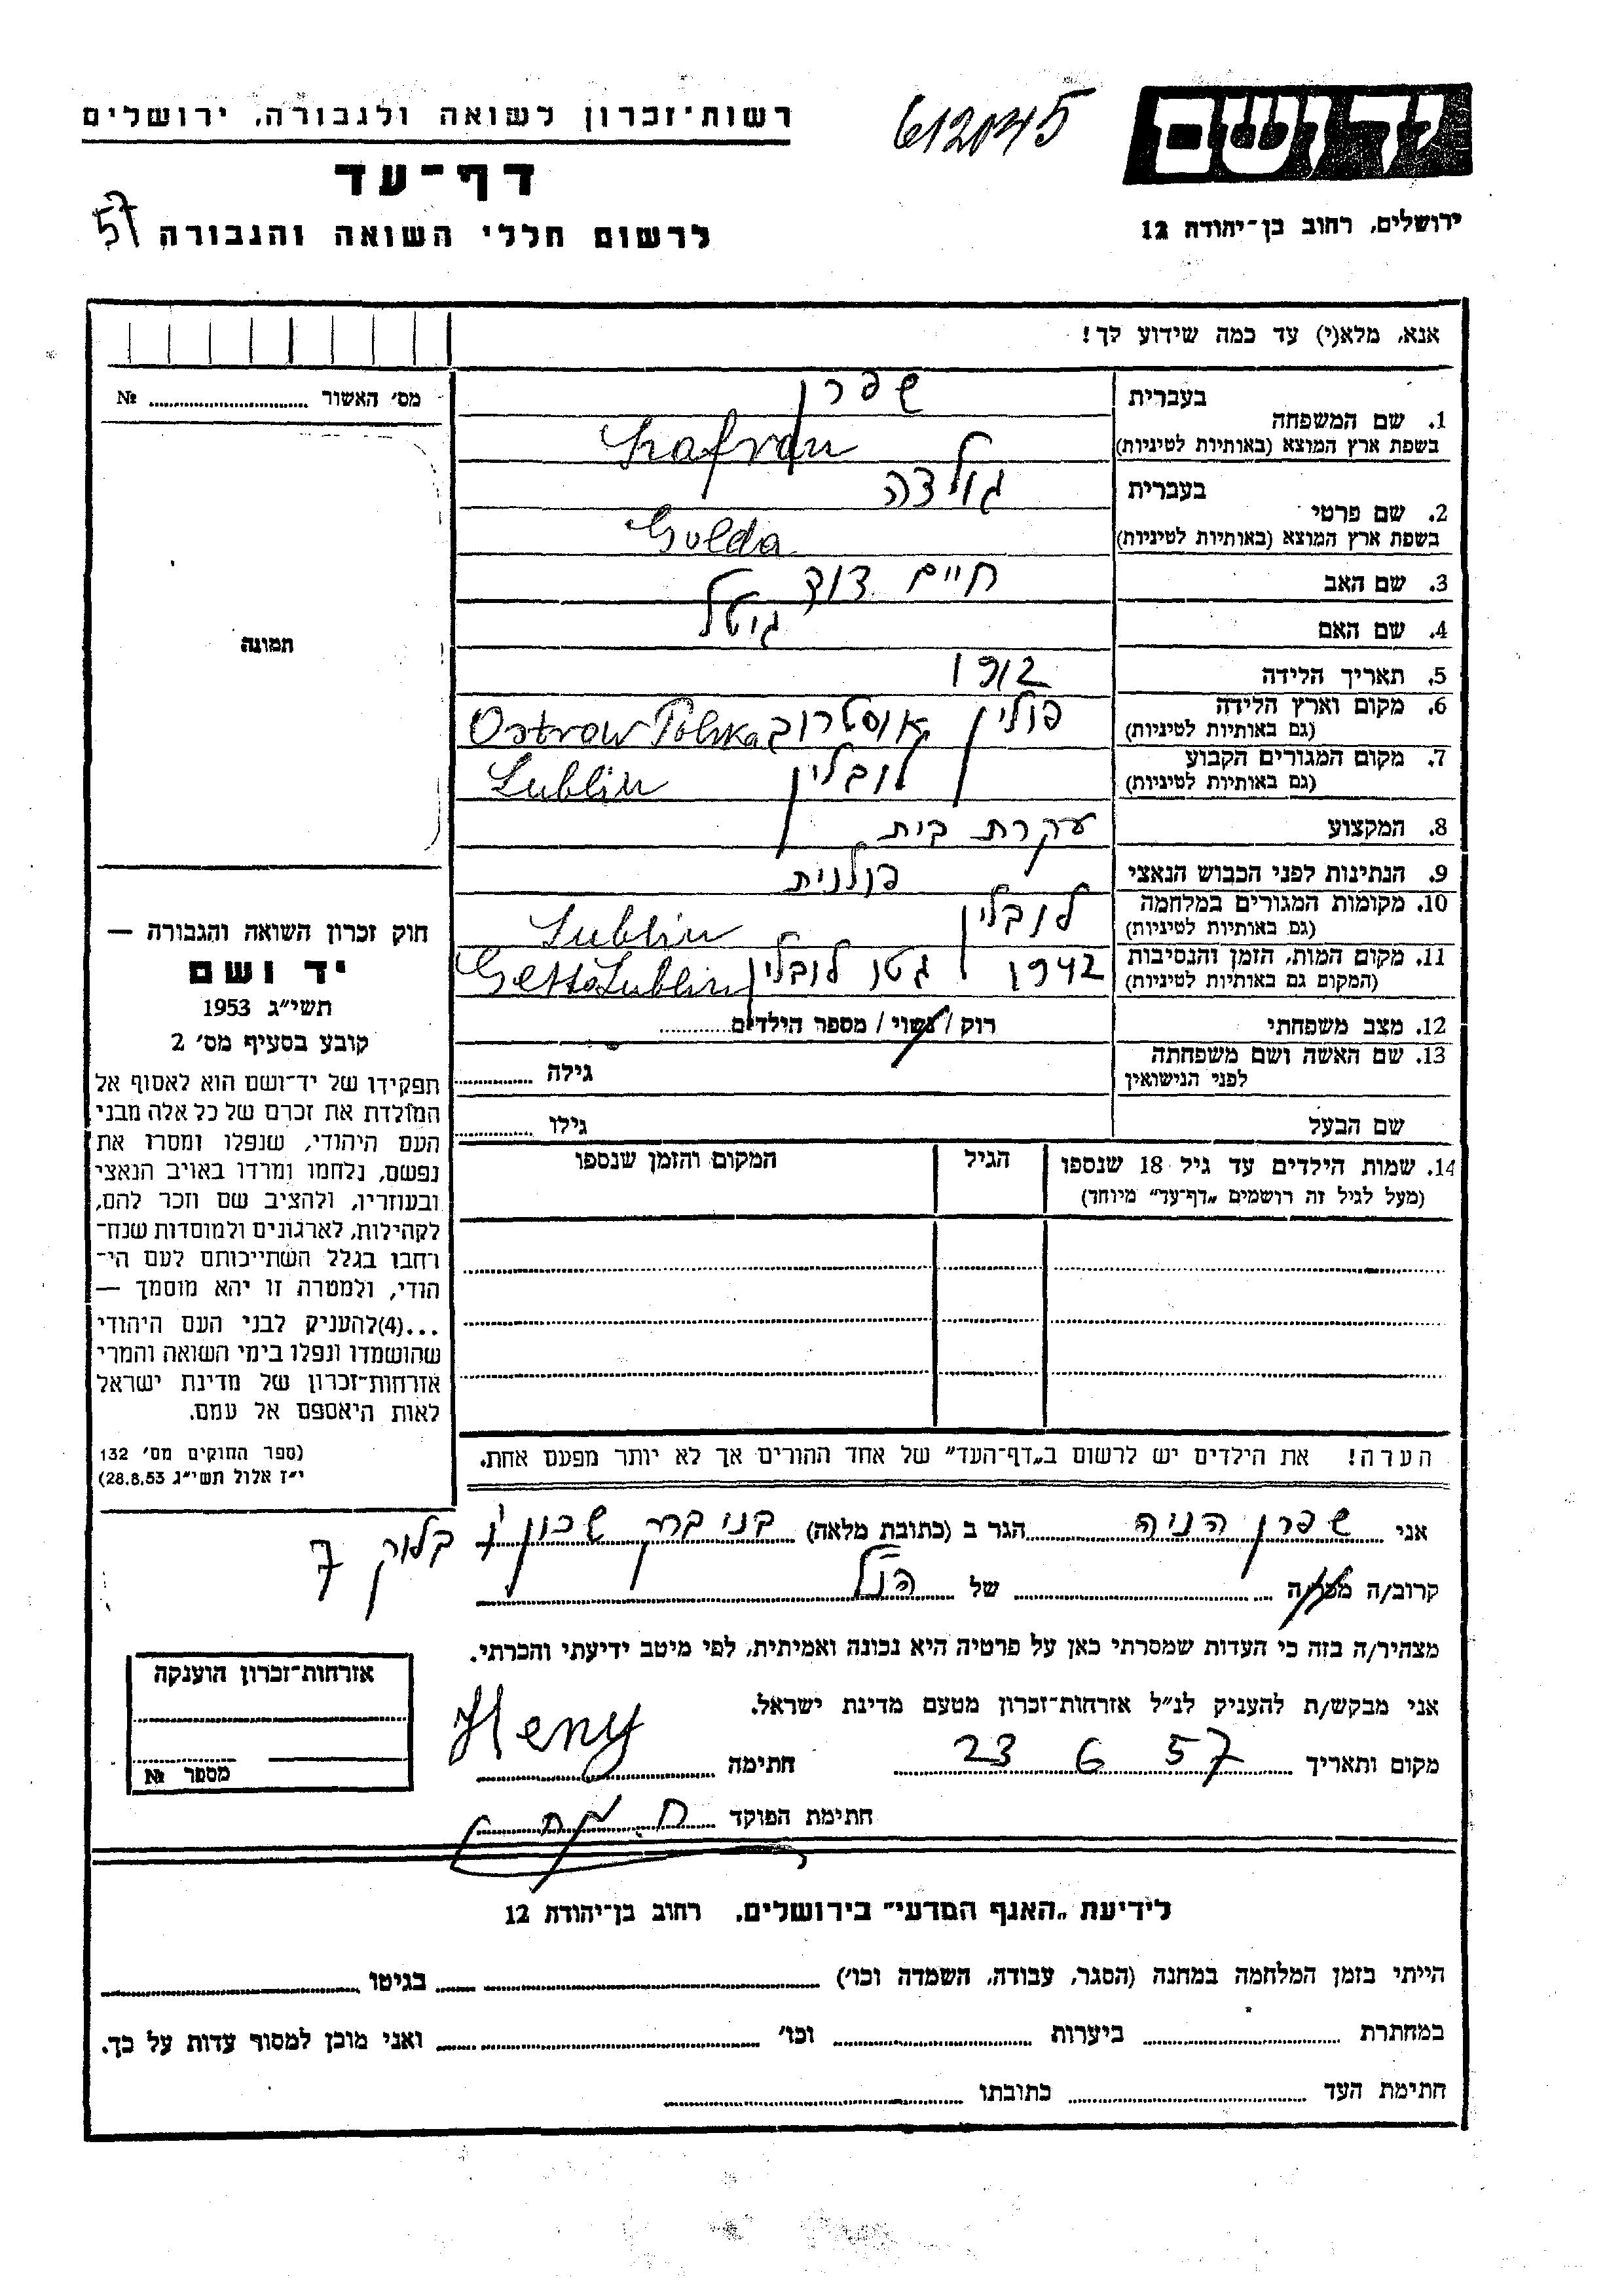 רשות־זכרון לשואה ולגבורה, ירושלים
612045
יד ושם
דף־עד
ירושלים, רחוב בן־יהודה 12
לרשום חללי השואה והגבורה
57
אנא, מלא(י) עד כמה שידוע לך!
מס׳ האשור № ........
תמונה
1. שם המשפחה
בעברית שפרן
בשפת ארץ המוצא (באותיות לטיניות) Szafran
2. שם פרטי
בעברית גולדה
בשפת ארץ המוצא (באותיות לטיניות) Golda
3. שם האב חיים דוד
4. שם האם גיטל
5. תאריך הלידה 1912
6. מקום וארץ הלידה פולין אוסטרוב Ostrow Polska
(גם באותיות לטיניות)
7. מקום המגורים הקבוע לובלין Lublin
(גם באותיות לטיניות)
8. המקצוע עקרת בית
9. הנתינות לפני הכבוש הנאצי פולנית
10. מקומות המגורים במלחמה לובלין Lublin
(גם באותיות לטיניות)
11. מקום המות, הזמן והנסיבות 1942 גטו לובלין Getto Lublin
(המקום גם באותיות לטיניות)
12. מצב משפחתי רוק / נשוי / מספר הילדים ........
13. שם האשה ושם משפחתה גילה ........
לפני הנישואין
שם הבעל גילו ........
14. שמות הילדים עד גיל 18 שנספו הגיל המקום והזמן שנספו
(מעל לגיל זה רושמים „דף־עד” מיוחד)
הערה! את הילדים יש לרשום ב„דף־העד” של אחד ההורים אך לא יותר מפעם אחת.
חוק זכרון השואה והגבורה —
יד ושם
תשי״ג 1953
קובע בסעיף מס׳ 2
תפקידו של יד־ושם הוא לאסוף אל
המולדת את זכרם של כל אלה מבני
העם היהודי, שנפלו ומסרו את
נפשם, נלחמו ומרדו באויב הנאצי
ובעוזריו, ולהציב שם וזכר להם,
לקהילות, לארגונים ולמוסדות שנח־
רבו בגלל השתייכותם לעם הי־
הודי, ולמטרה זו יהא מוסמך —
...(4)להעניק לבני העם היהודי
שהושמדו ונפלו בימי השואה והמרי
אזרחות־זכרון של מדינת ישראל
לאות היאספם אל עמם.
(ספר החוקים מס׳ 132
י״ז אלול תשי״ג 28.8.53)
אני שפרן הניה הגר ב (כתובת מלאה) בני ברק שכון ו׳ בלוק 7
קרוב/ה מכר/ה ........ של הנ״ל
מצהיר/ה בזה כי העדות שמסרתי כאן על פרטיה היא נכונה ואמיתית, לפי מיטב ידיעתי והכרתי.
אני מבקש/ת להעניק לנ״ל אזרחות־זכרון מטעם מדינת ישראל.
מקום ותאריך 23 6 57 חתימה Heny
חתימת הפוקד
אזרחות־זכרון הוענקה
מספר №
לידיעת „האגף המדעי” בירושלים. רחוב בן־יהודה 12
הייתי בזמן המלחמה במחנה (הסגר, עבודה, השמדה וכו׳) ........ בגיטו ........
במחתרת ........ ביערות ........ וכו׳ ........ ואני מוכן למסור עדות על כך.
חתימת העד ........ כתובתו ........